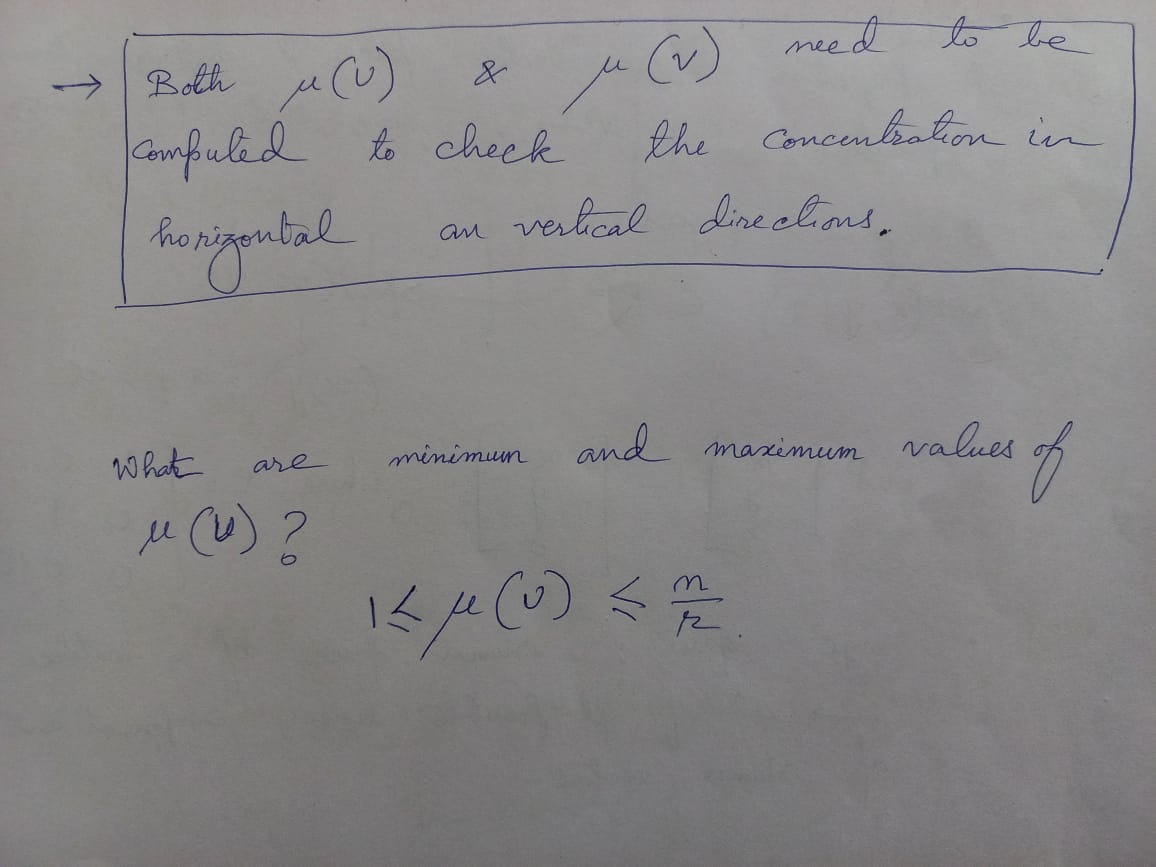 → Both μ(U) & μ(V) need to be
computed to check the concentration in
horizontal an vertical directions.
What are minimum and maximum values of
μ(U)?
1 ≤ μ(U) ≤ n/r.